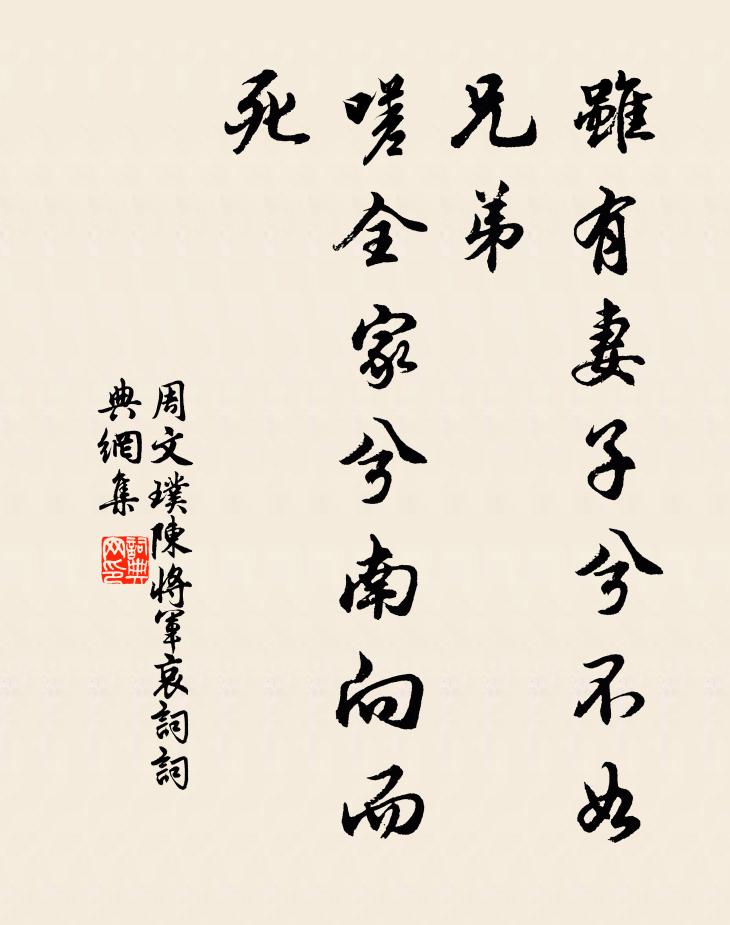 雖有妻子兮不如
兄弟
嗟全家兮南向而
死
周文璞陳將軍哀詞詞
典網集
詞典
网印